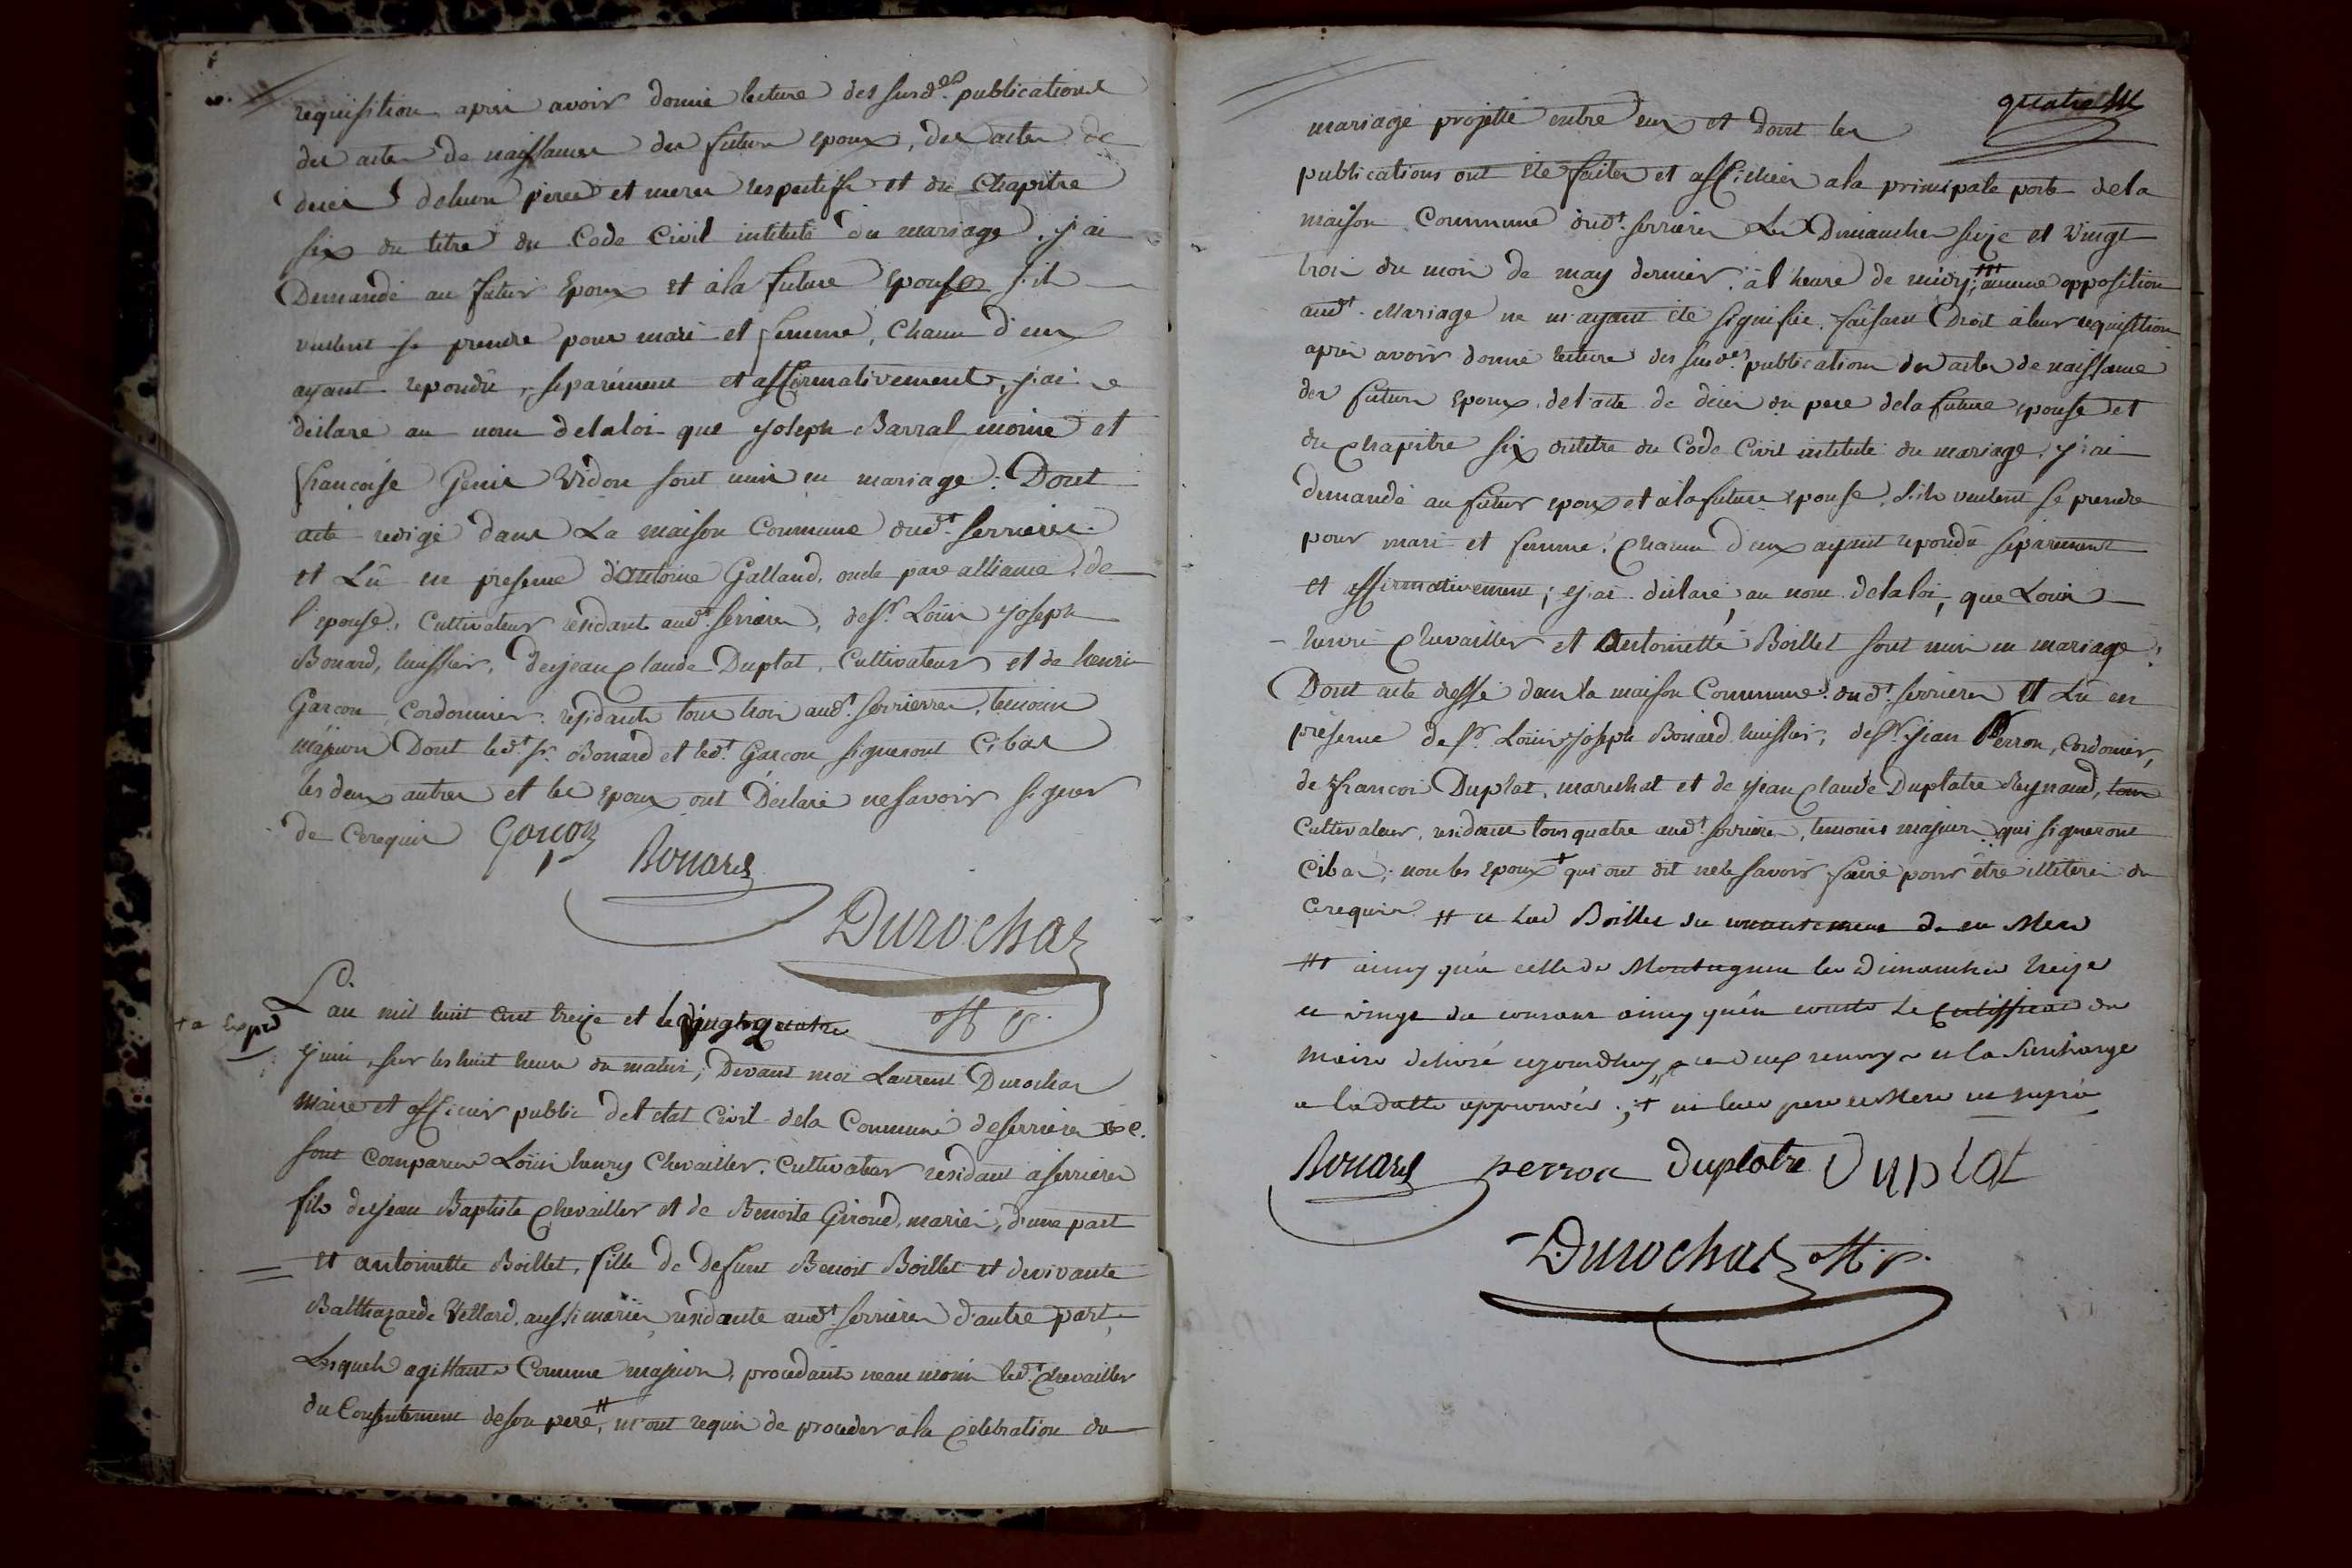 requisition, après avoir donné lecture des susd.es publications
des actes de naissances des futurs epoux, des actes de
décès de leurs peres et meres respectifs et du Chapitre
six du titre du Code Civil intitulé du mariage. j'ai
Demandé au futur Epoux et à la future Epouse s'ils
veulent se prendre pour mari et femme, chacun d'eux
ayant repondû, separément et affirmativement, j'ai
déclaré au nom de la loi que Joseph Barral moine et
francoise Genie Vidon sont unis en mariage. Dont
acte redigé dans La maison Commune dud.t Serrieres
et Lû en presence d'antoine Galland, oncle par alliance de
l'epouse, Cultivateur residant aud.t serrieres, de s.r Loüis Joseph
Bouard, huissier, de jean claude Duplat, Cultivateur et de henri
Garcon, Cordonnier, residants tous trois aud.t serrieres, temoins
majeurs Dont led.t s.r Bouard et led.t Garcon signeront Ci bas
les deux autres et les epoux ont Déclaré ne savoir signer
de Ce requis Garcon
Bouard
Durochat
off p.
+ a Expd
L'an mil huit cent treize et le vingt quatre
juin, sur les huit heures du matin; Devant moi Laurent Durochat
Maire et officier public de l'etat Civil de la Commune de serrieres &c.
sont comparus Loüis henry Chevailler, Cultivateur residant à serrieres
fils de jean Baptiste Chevailler et de Benoite Giroud, mariés, d'une part
et antoinette Boillet, fille de defunt Benoit Boillet et de vivante
Balthazarde Vellard, aussi mariés, residante aud.t serrieres d'autre part,
Lesquels agissants Comme majeurs, procedants neanmoins led.t Chevailler
du Consentement de son pere, # m'ont requis de proceder à la celebration du
quatre
mariage projetté entre eux et dont les
publications ont été faites et affichées a la principale porte de la
maison Commune dud.t serrieres Les Dimanches seize et Vingt
trois du mois de may dernier, à l'heure de midy; ### aucune opposition
aud.t Mariage ne m'ayant été signifiée, faisant Droit à leur requisition
après avoir donné lecture des susd.es publications des actes de naissance
des futurs Epoux, de l'acte de décès du pere de la future epouse et
du Chapitre six du titre du Code Civil intitulé du mariage, j'ai
demandé au futur epoux et à la future epouse, s'ils veulent se prendre
pour mari et femme, chacun d'eux ayant repondû separément
et affirmativement; j'ai déclaré, au nom de la loi, que Louis
henri Chevailler et Antoinette Boillet sont unis en mariage:
Dont acte dressé dans la maison Commune dud.t serrieres et Lû en
présence de s.r Loüis Joseph Bouard huissier, de s.r Jean Perron, Cordonier,
de francois Duplat, marechal et de jean Claude Duplatre Reynaud, tous
Cultivateur, residants tous quatre aud.t serrieres, temoins majeurs qui signeront
Ci bas, non les epoux + qui ont dit ne le savoir faire pour être illiterés de
Ce requis # et lad Boillet du consentement de sa Mere
### ainsy qu'a celle de Montagnieu les dimanches treize
et vingt du courant ainsy qu'en conste le Certifficat du
Maire delivré aujourdhuy, ces deux renvoys et la surcharge
a la datte approuvés; + ni leur pere et Mere
Bouard perron duplatre Duplat
Durochat off p.